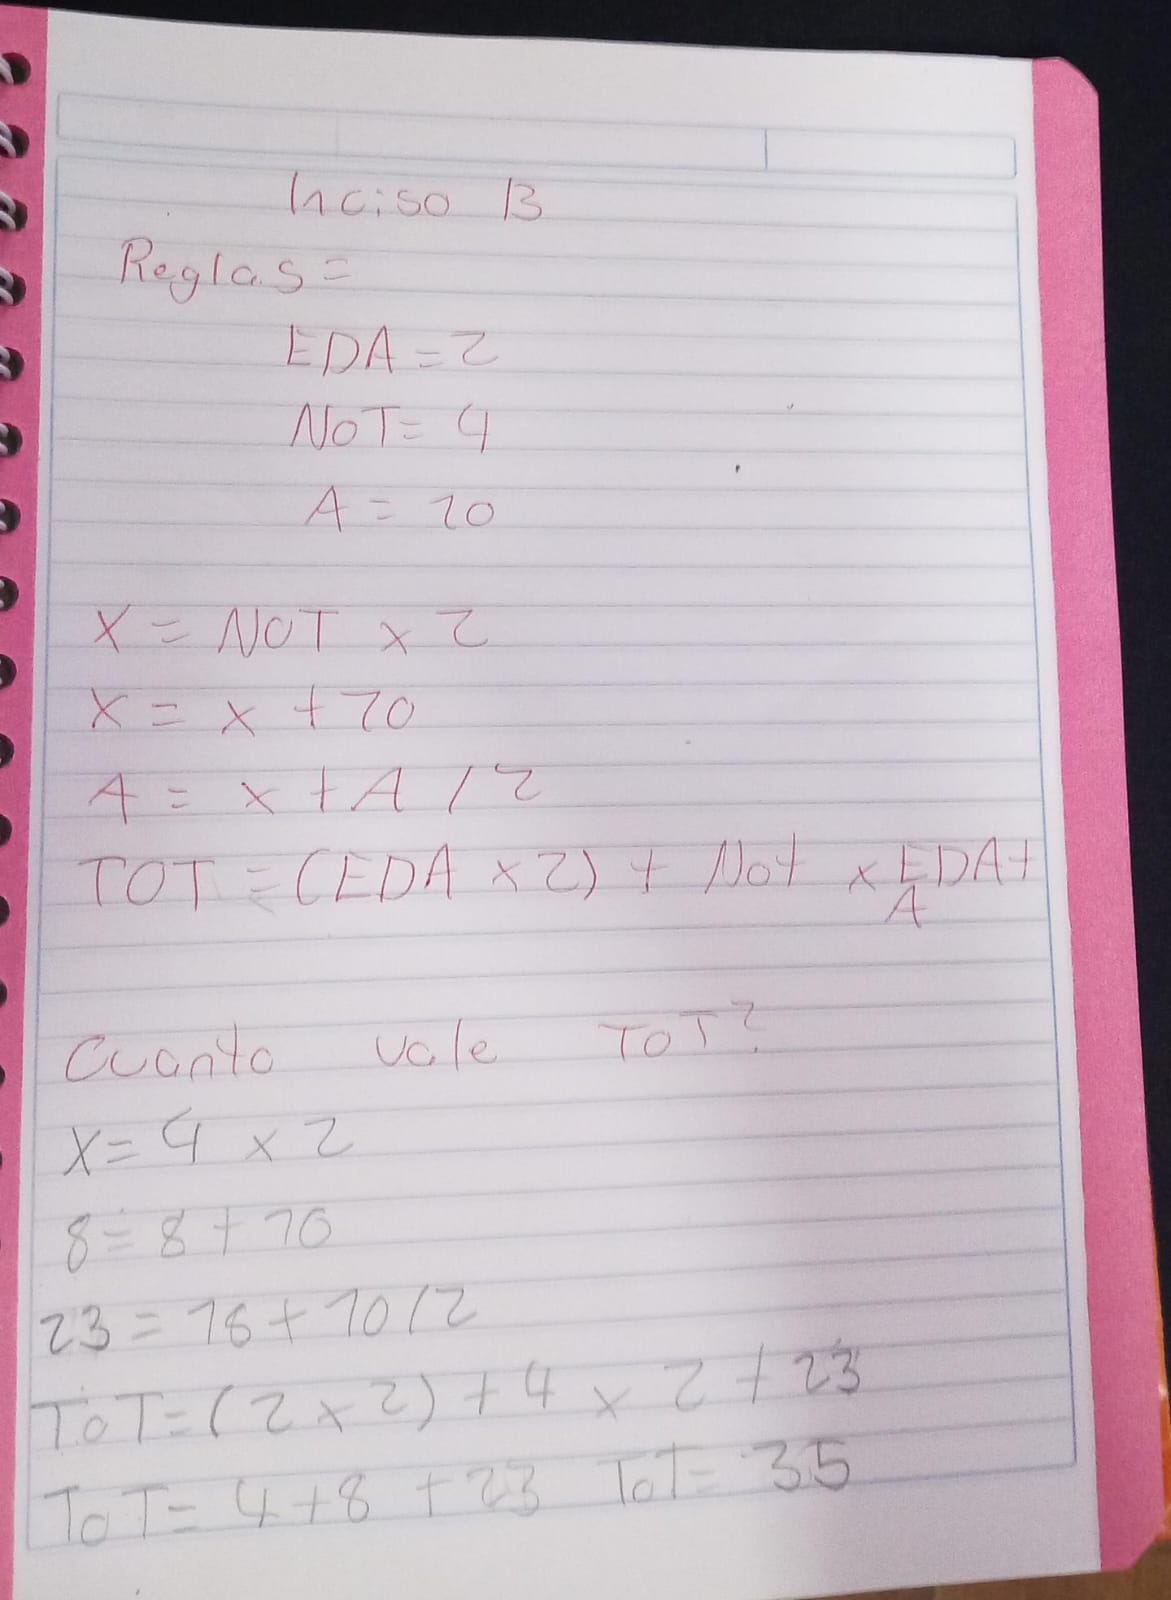 Inciso B
Reglas=
EDA = 2
NOT= 4
A = 10
X = NOT x 2
X = x + 10
A = x + A / 2
TOT = (EDA x 2) + Not x EDA +
A
Cuanto vale TOT?
X= 4 x 2
8 = 8 + 10
23 = 18 + 10/2
TOT= (2 x 2) + 4 x 2 + 23
TOT= 4 + 8 + 23 TOT= 35